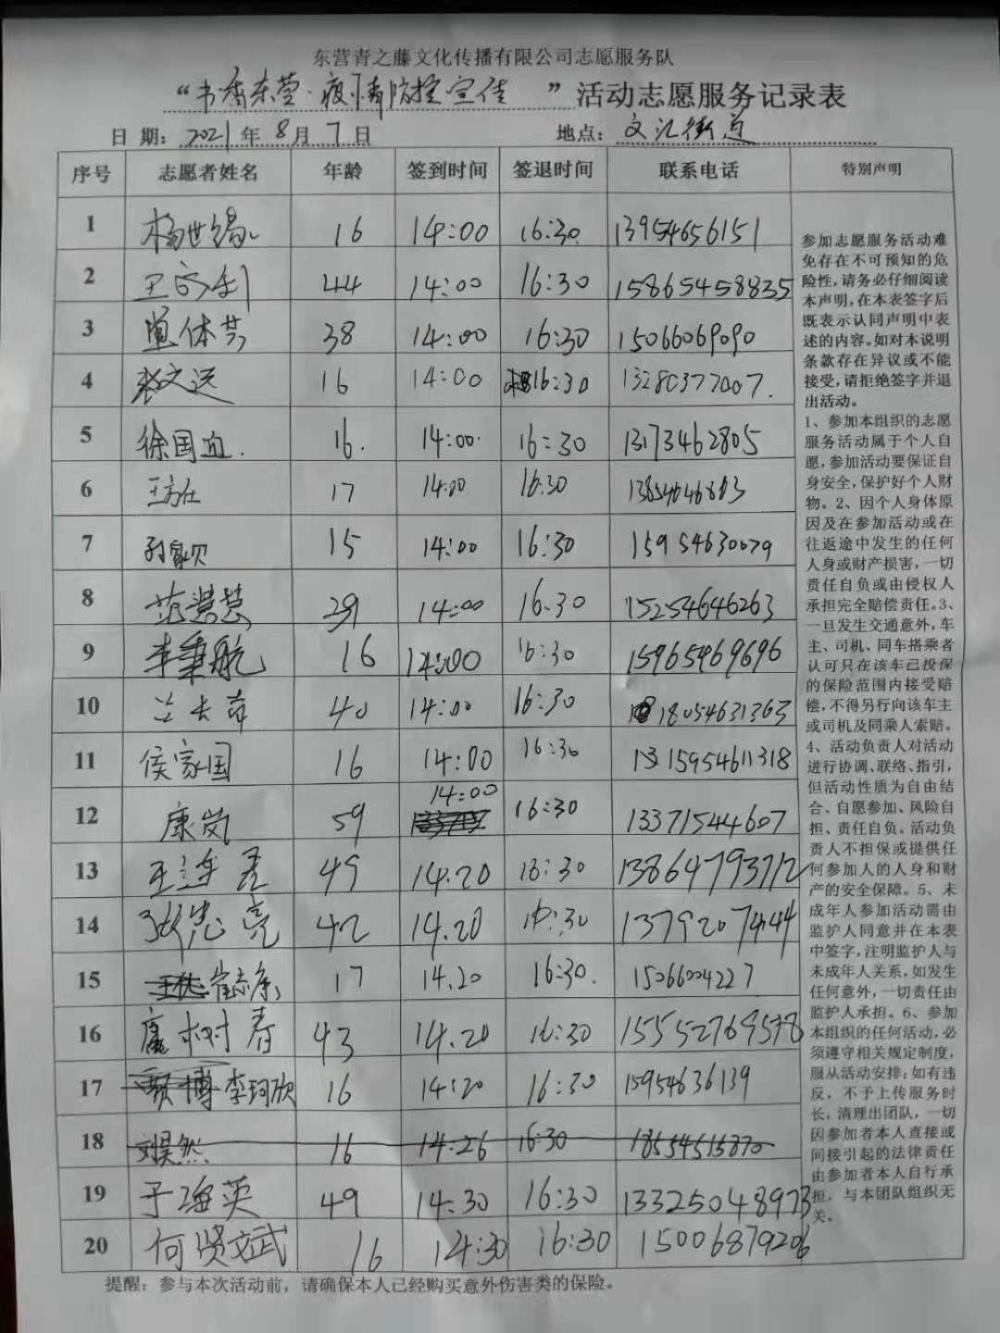 东营青之藤文化传播有限公司志愿服务队
“书香东营·疫情防控宣传 ”活动志愿服务记录表
日 期: 2021 年 8 月 7 日 地点: 文汇街道
序号 志愿者姓名 年龄 签到时间 签退时间 联系电话 特别声明
1 杨世缘 16 14:00 16:30 13954656151
2 44 14:00 16:30 15865458835
3 单体芸 38 14:00 16:30 15066069090
4 16 14:00 16:30 13280377007.
5 徐国 16. 14:00. 16:30 13173462805
6 17 14:00 16:30
7 15 14:00 16:30 15954630079
8 范慧慧 29 14:00 16:30 15254646263
9 李秉航 16 14:00 16:30 15965469696
10 40 14:00 16:30 18054631363
11 侯家国 16 14:00 16:30 15954611318
12 康岚 59 14:00 16:30 13371544607
13 49 14.20 16:30 13864793712
14 张忠亮 42 14.20 16:30 13792074444
15 崔志康 17 14.20 16:30. 15066004227
16 康树春 43 14.20 16:30 15552769578
17 贾博 李珂欣 16 14:20 16:30 15954636139
18 刘昊然 16 14:26 16:30 18554515870
19 于海英 49 14.30 16:30 13325048973
20 何贤斌 16 14:30 16:30 15006879206
参加志愿服务活动难
免存在不可预知的危
险性,请务必仔细阅读
本声明,在本表签字后
既表示认同声明中表
述的内容。如对本说明
条款存在异议或不能
接受,请拒绝签字并退
出活动。
1、参加本组织的志愿
服务活动属于个人自
愿,参加活动要保证自
身安全,保护好个人财
物。2、因个人身体原
因及在参加活动或在
往返途中发生的任何
人身或财产损害,一切
责任自负或由侵权人
承担完全赔偿责任。3、
一旦发生交通意外,车
主、司机、同车搭乘者
认可只在该车已投保
的保险范围内接受赔
偿,不得另行向该车主
或司机及同乘人索赔。
4、活动负责人对活动
进行协调、联络、指引,
但活动性质为自由结
合、自愿参加、风险自
担、责任自负。活动负
责人不担保或提供任
何参加人的人身和财
产的安全保障。5、未
成年人参加活动需由
监护人同意并在本表
中签字,注明监护人与
未成年人关系,如发生
任何意外,一切责任由
监护人承担。6、参加
本组织的任何活动,必
须遵守相关规定制度,
服从活动安排;如有违
反,不予上传服务时
长,清理出团队,一切
因参加者本人直接或
间接引起的法律责任
由参加者本人自行承
担,与本团队组织无
关。
提醒:参与本次活动前,请确保本人已经购买意外伤害类的保险。